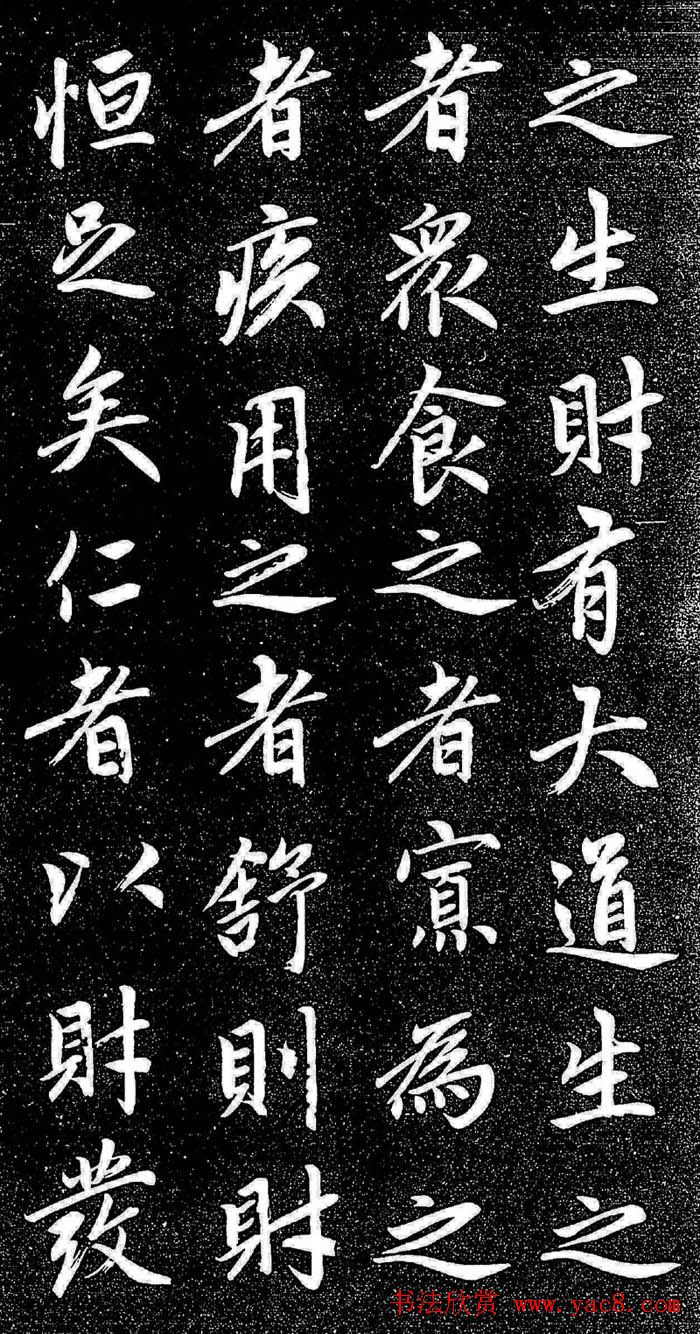 之生財有大道生之
者眾食之者寡為之
者疾用之者舒則財
恒足矣仁者以財發
书法欣赏 www.yac8.com